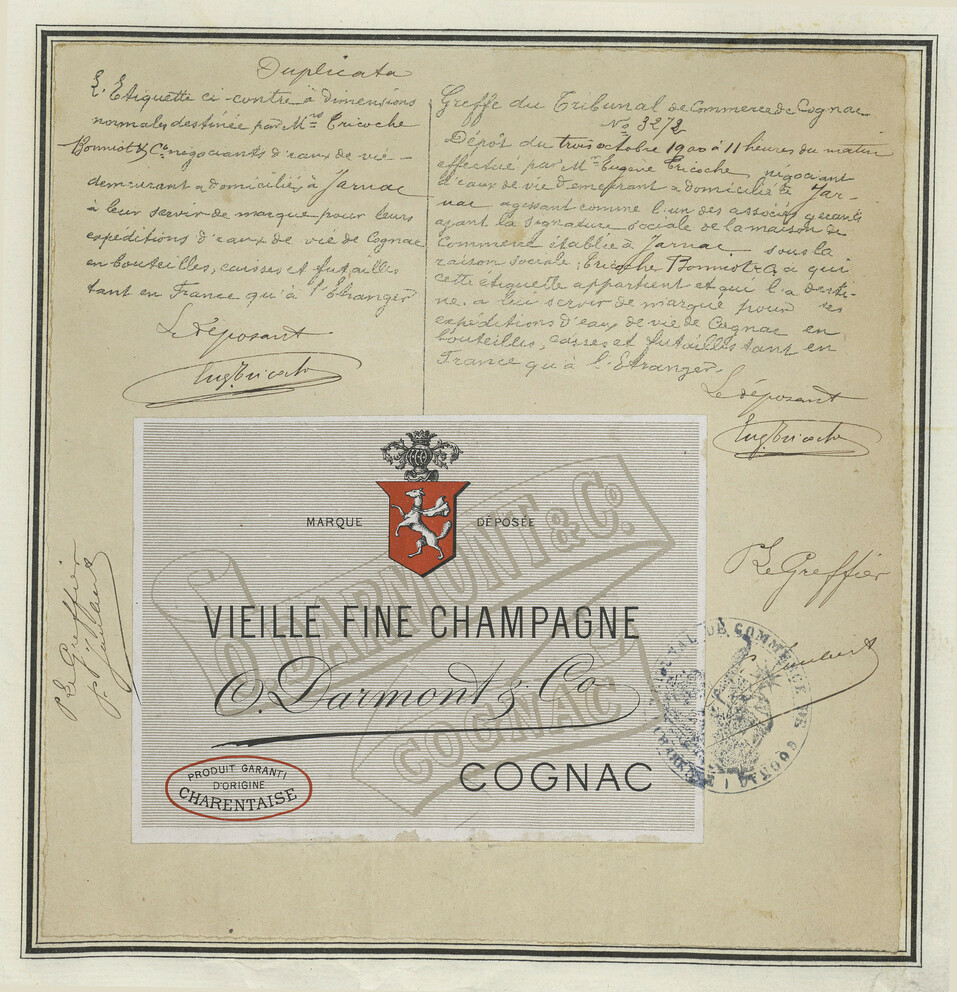 Duplicata
L'Etiquette ci-contre à dimensions
normales destinée par Mrs Tricoche
Bonniot & Co négociants d'eaux de vie
demeurant & domiciliés à Jarnac
à leur servir de marque pour leurs
expéditions d'eaux de vie de Cognac
en bouteilles, caisses et futailles
tant en France qu'à l'Etranger
Le déposant
Eug. Tricoche
Greffe du Tribunal de Commerce de Cognac
No 3272
Dépôt du trois octobre 1900 à 11 heures du matin
effectué par Mr Eugène Tricoche, négociant
d'eaux de vie demeurant & domicilié à Jar-
nac agissant comme l'un des associés gérants
ayant la signature sociale de la maison de
Commerce établie à Jarnac sous la
raison sociale: Tricoche Bonniot & Co à qui
cette étiquette appartient et qui l'a desti-
née à lui servir de marque pour ses
expéditions d'eaux de vie de Cognac en
bouteilles, caisses et futailles tant en
France qu'à l'Etranger.
Le déposant
Eug. Tricoche
MARQUE DÉPOSÉE
O. DARMONT & Co.
COGNAC
VIEILLE FINE CHAMPAGNE
O. Darmont & Co
COGNAC
PRODUIT GARANTI
D'ORIGINE
CHARENTAISE
Le Greffier
Le Greffier
TRIBUNAL DE COMMERCE DE COGNAC